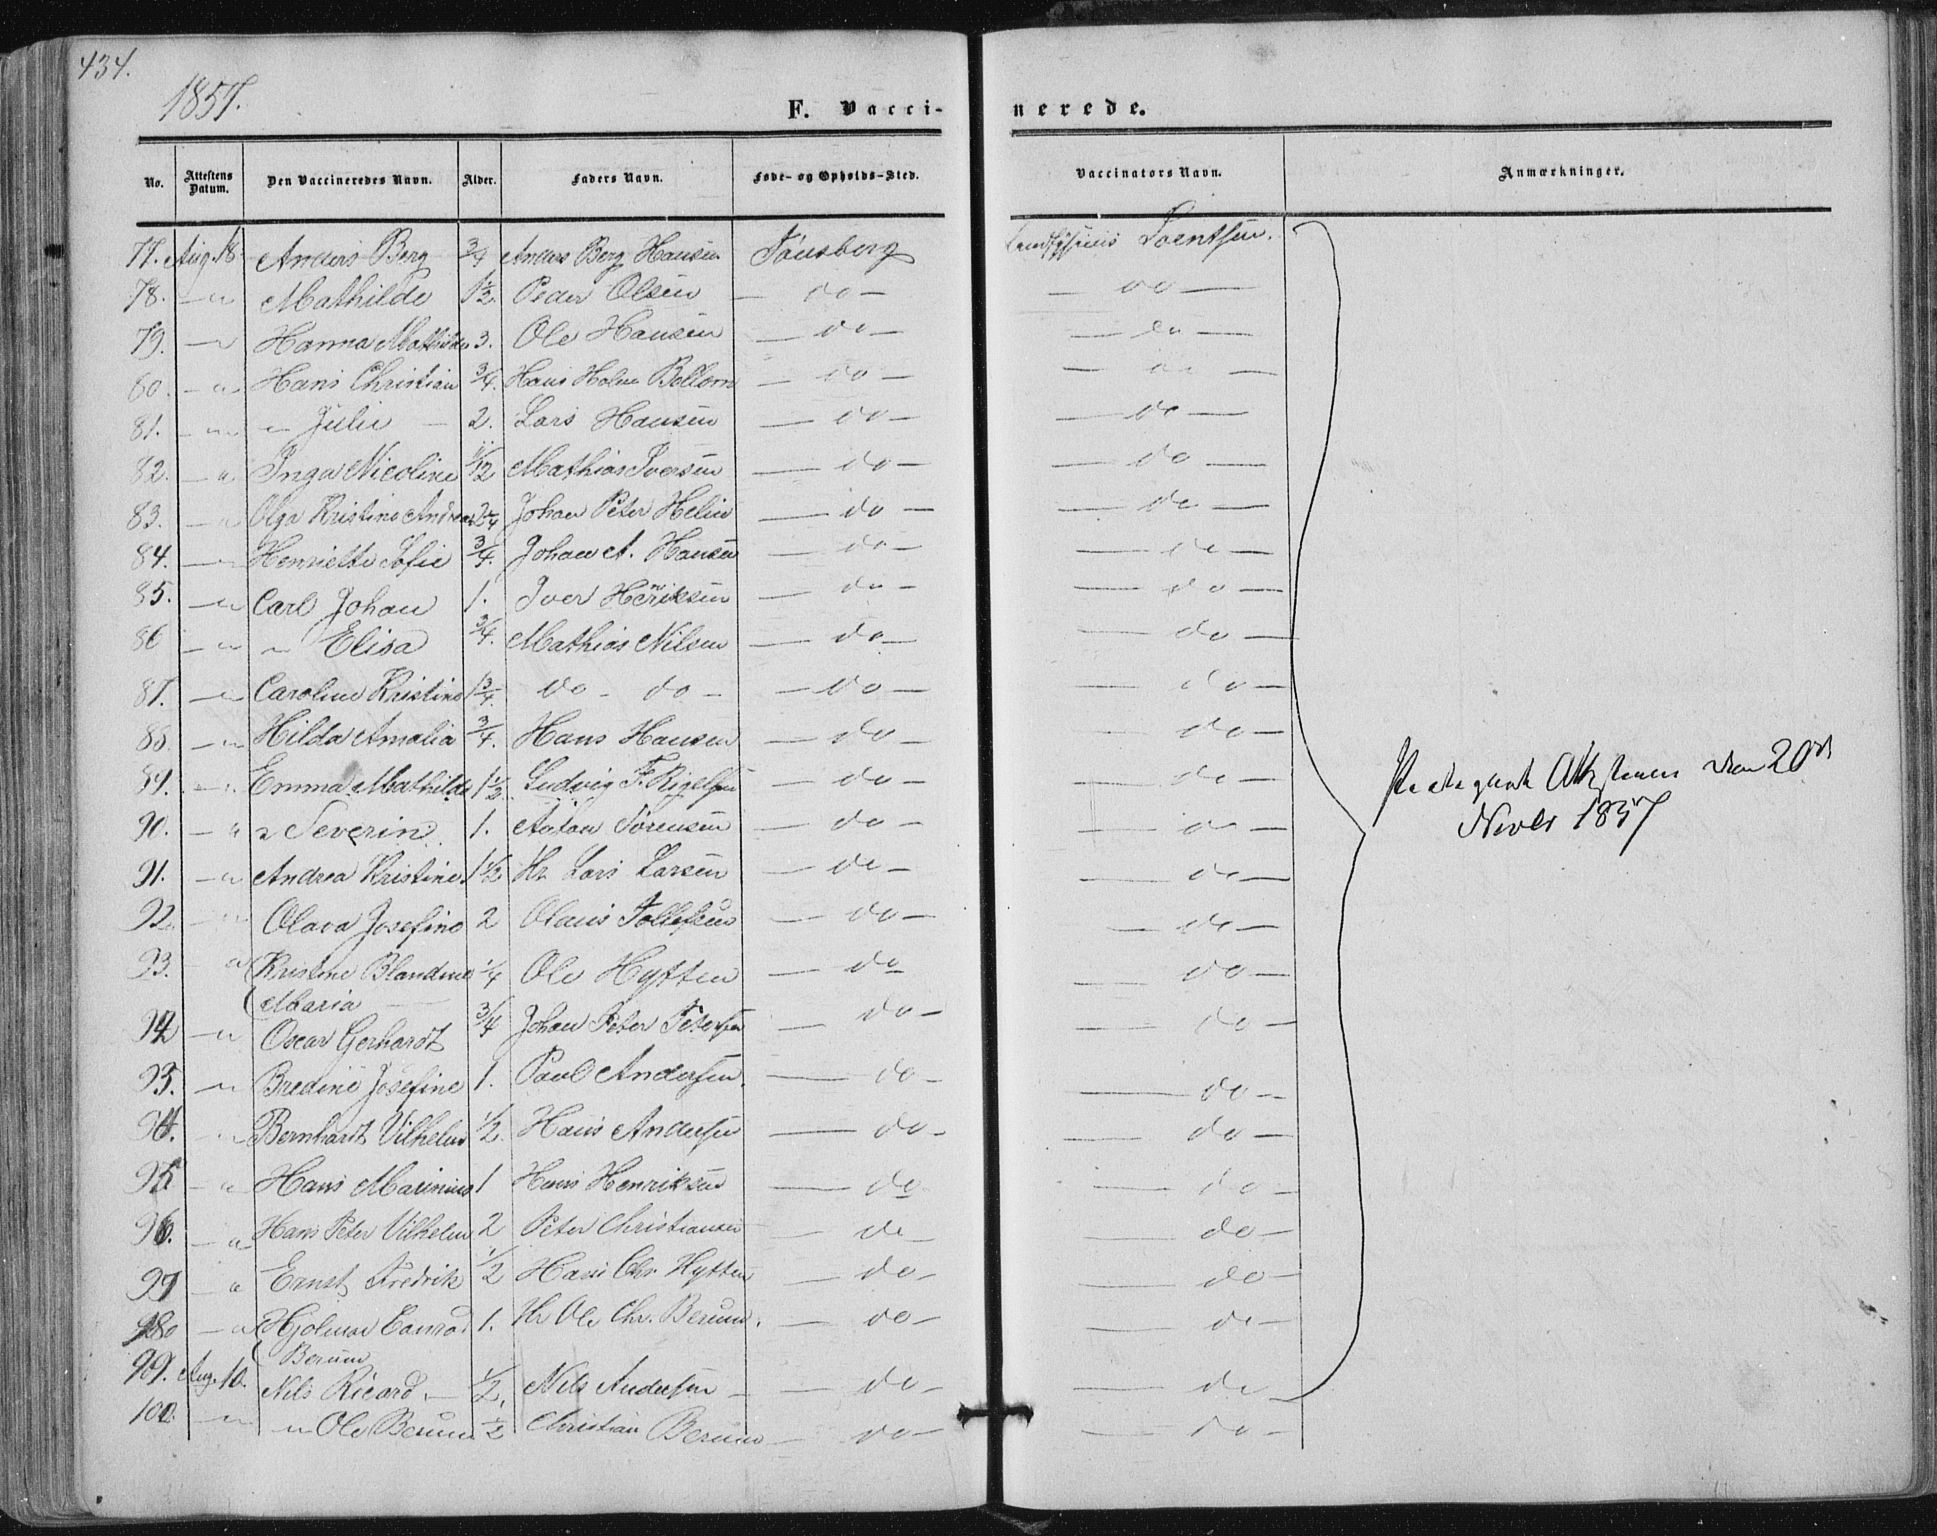 434.
1857.
F. Vaccinerede.
No. Attestens Datum. Den Vaccineredes Navn. Alder. Faders Navn. Føde- og Opholds-Sted. Vaccinators Navn. Anmærkninger.
77. Aug. 18. Anders Berg 3/4 Anders Berg Hansen Tønsberg
78. — " Mathilde 1 1/2. Peder Olsen — do — — do —
79. — " Hanna Mathilde 3. Ole Hansen — do — — do —
80. — " Hans Christian 3/4. Hans Holm — do — — do —
81. — " — " Julie — 2. Lars Hansen — do — — do —
82. — " Inga Nicoline 11/12 Mathias Iversen — do — — do —
83. — " Olga Kristine Johan Peter Helin — do — — do —
84. — " Henriette Sofie 3/4. Johan A. Hansen — do — — do —
85. — " Carl Johan 1. Iver Henriksen — do — — do —
86 — " — " Elisa 3/4. Mathias Nilsen — do — — do —
87. — " Caroline Kristine 1 3/4. do — do — — do — — do —
88. — " Hilda Amalia 3/4. Hans Hansen — do — — do —
89. — " Emma Mathilde 1 1/2. Ludvig F. — do — — do —
90. — " " Severin 1. Anton Sørensen — do — — do —
91. — " Andrea Kristine 1 1/2 Hr. Lars Larsen — do — — do —
92. — " Olava Josefine 2 Olaus Tollefsen — do — — do —
93. " Kristine Blandine 1/4 Ole Hytten — do — do —
Maria —
94 — " Oscar Gerhardt 3/4 Johan Peter Petersen — do — — do —
93. — " Bredine Josefine 1. Paul Andersen — do — — do —
94. — " Bernhardt Vilhelm 1/2. Hans Andersen — do — — do —
95 — " Hans Marinius 1 Hans Henriksen — do — do —
96. — " Hans Peter Vilhelm 2 Peter Christiansen — do — — do —
97 — " Ernst Fredrik 1/2 Hans Chr. Hytten — do — — do —
98 — " Hjalmar Conrad 1. Hr Ole Chr. Berum. — do — — do —
Berum
99. Aug. 10. Nils Ricard. — 1/2. Nils Andersen — — do — — do —
100. — " — " Ole Berum 1/2 Christian Berum — do — — do —
Attesterne den 20de
Novbr 1857